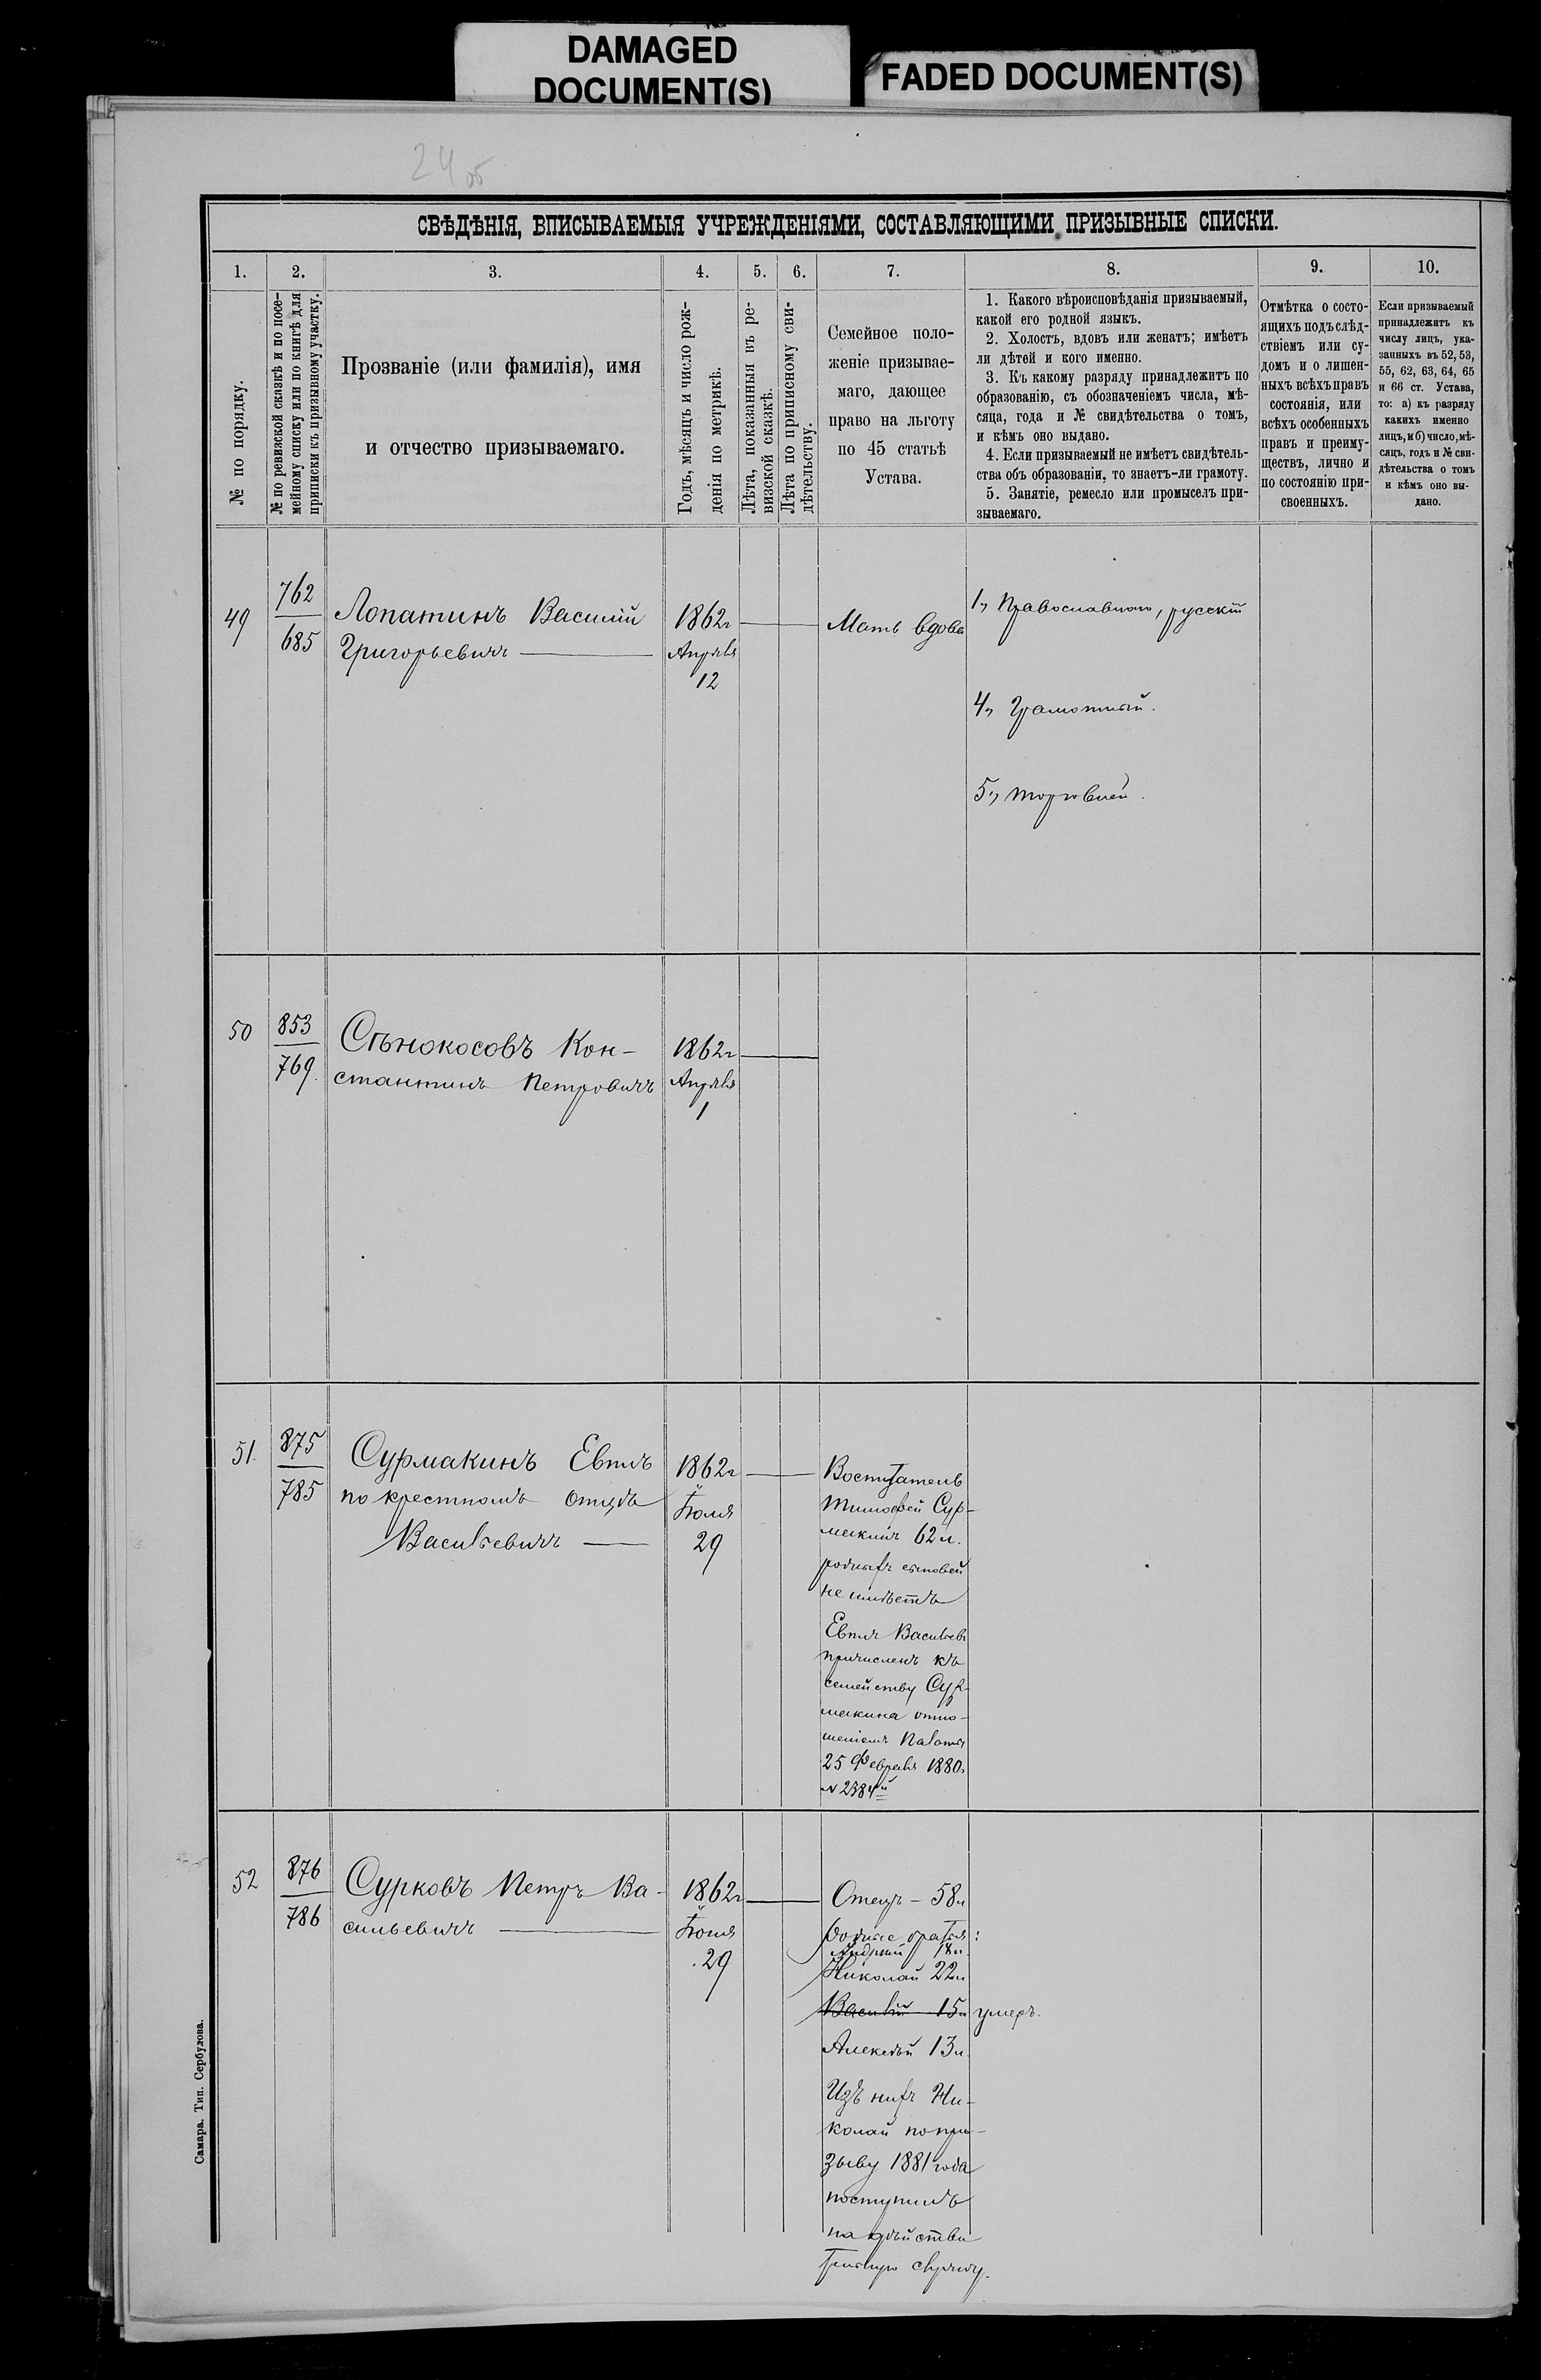 DAMAGED
DOCUMENT(S)
FADED DOCUMENT(S)
24 об
СВѢДѢНІЯ, ВПИСЫВАЕМЫЯ УЧРЕЖДЕНІЯМИ, СОСТАВЛЯЮЩИМИ ПРИЗЫВНЫЕ СПИСКИ.
1.
№ по порядку.
2.
№ по ревизской сказкѣ и по посе-
мейному списку или по книгѣ для
приписки къ призывному участку.
3.
Прозваніе (или фамилія), имя
и отчество призываемаго.
4.
Годъ, мѣсяцъ и число рож-
денія по метрикѣ.
5.
Лѣта, показанныя въ ре-
визской сказкѣ.
6.
Лѣта по приписному сви-
дѣтельству.
7.
Семейное поло-
женіе призывае-
маго, дающее
право на льготу
по 45 статьѣ
Устава.
8.
1. Какого вѣроисповѣданія призываемый,
какой его родной языкъ.
2. Холостъ, вдовъ или женатъ; имѣетъ
ли дѣтей и кого именно.
3. Къ какому разряду принадлежитъ по
образованію, съ обозначеніемъ числа, мѣ-
сяца, года и № свидѣтельства о томъ,
и кѣмъ оно выдано.
4. Если призываемый не имѣетъ свидѣтель-
ства объ образованіи, то знаетъ-ли грамоту.
5. Занятіе, ремесло или промыселъ при-
зываемаго.
9.
Отмѣтка о состо-
ящихъ подъ слѣд-
ствіемъ или су-
домъ и о лишен-
ныхъ всѣхъ правъ
состоянія, или
всѣхъ особенныхъ
правъ и преиму-
ществъ, лично и
по состоянію при-
своенныхъ.
10.
Если призываемый
принадлежитъ къ
числу лицъ, ука-
занныхъ въ 52, 53,
55, 62, 63, 64, 65
и 66 ст. Устава,
то: а) къ разряду
какихъ именно
лицъ, и б) число, мѣ-
сяцъ, годъ и № сви-
дѣтельства о томъ
и кѣмъ оно вы-
дано.
49
762
685
Лопатинъ Василій
Григорьевичъ
1862г
Апрѣля
12
Мать вдова
1, Православнаго, русскій
4, Грамотный.
5, торговлей.
50
853
769.
Сѣнокосовъ Кон-
стантинъ Петровичъ
1862г
Апрѣля
1
51.
875
785
Сурмакинъ Евплъ
по крестномъ отцѣ
Васильевичъ
1862г
Іюля
29
Воспитатель
Тимофей Сур-
макинъ 62 л.
родныхъ сыновей
не имѣетъ
Евплъ Васильевъ
причисленъ къ
семейству Сур-
макина отно-
шеніемъ Палаты
25 Февраля 1880.
52
876
786
Сурковъ Петръ Ва-
сильевичъ
1862г
Іюня
29
Отецъ – 58 л
родные братья:
Андрей 18 л.
Николай 22 л
Василій 15 л умеръ.
Алексѣй 13 л.
Изъ нихъ Ни-
колай по при-
зыву 1881 года
поступилъ
на дѣйстви
тельную службу.
Самара. Тип. Сербулова.